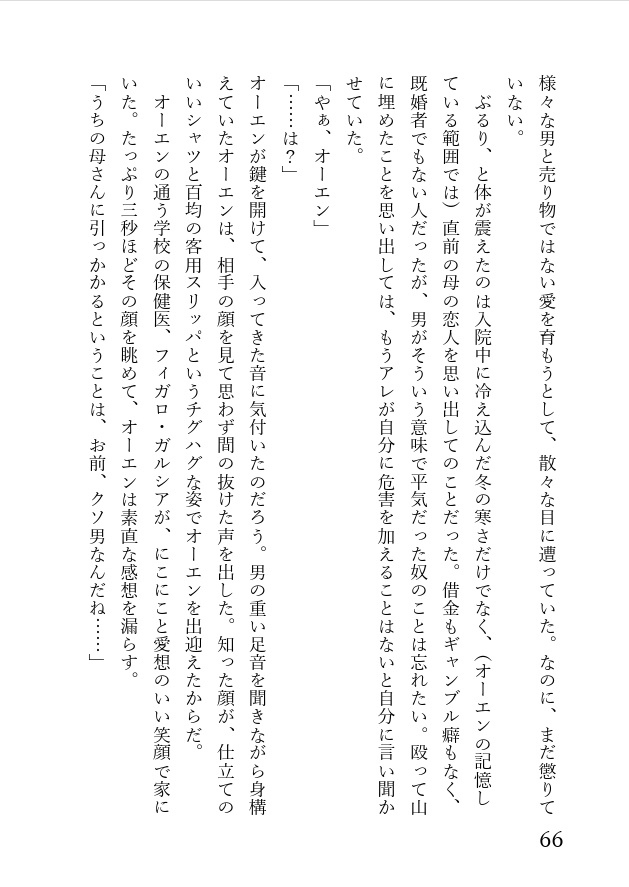 様々な男と売り物ではない愛を育もうとして、散々な目に遭っていた。なのに、まだ懲りて
いない。
　ぶるり、と体が震えたのは入院中に冷え込んだ冬の寒さだけでなく、（オーエンの記憶し
ている範囲では）直前の母の恋人を思い出してのことだった。借金もギャンブル癖もなく、
既婚者でもない人だったが、男がそういう意味で平気だった奴のことは忘れたい。殴って山
に埋めたことを思い出しては、もうアレが自分に危害を加えることはないと自分に言い聞か
せていた。
「やぁ、オーエン」
「……は？」
オーエンが鍵を開けて、入ってきた音に気付いたのだろう。男の重い足音を聞きながら身構
えていたオーエンは、相手の顔を見て思わず間の抜けた声を出した。知った顔が、仕立ての
いいシャツと百均の客用スリッパというチグハグな姿でオーエンを出迎えたからだ。
　オーエンの通う学校の保健医、フィガロ・ガルシアが、にこにこと愛想のいい笑顔で家に
いた。たっぷり三秒ほどその顔を眺めて、オーエンは素直な感想を漏らす。
「うちの母さんに引っかかるということは、お前、クソ男なんだね……」
66